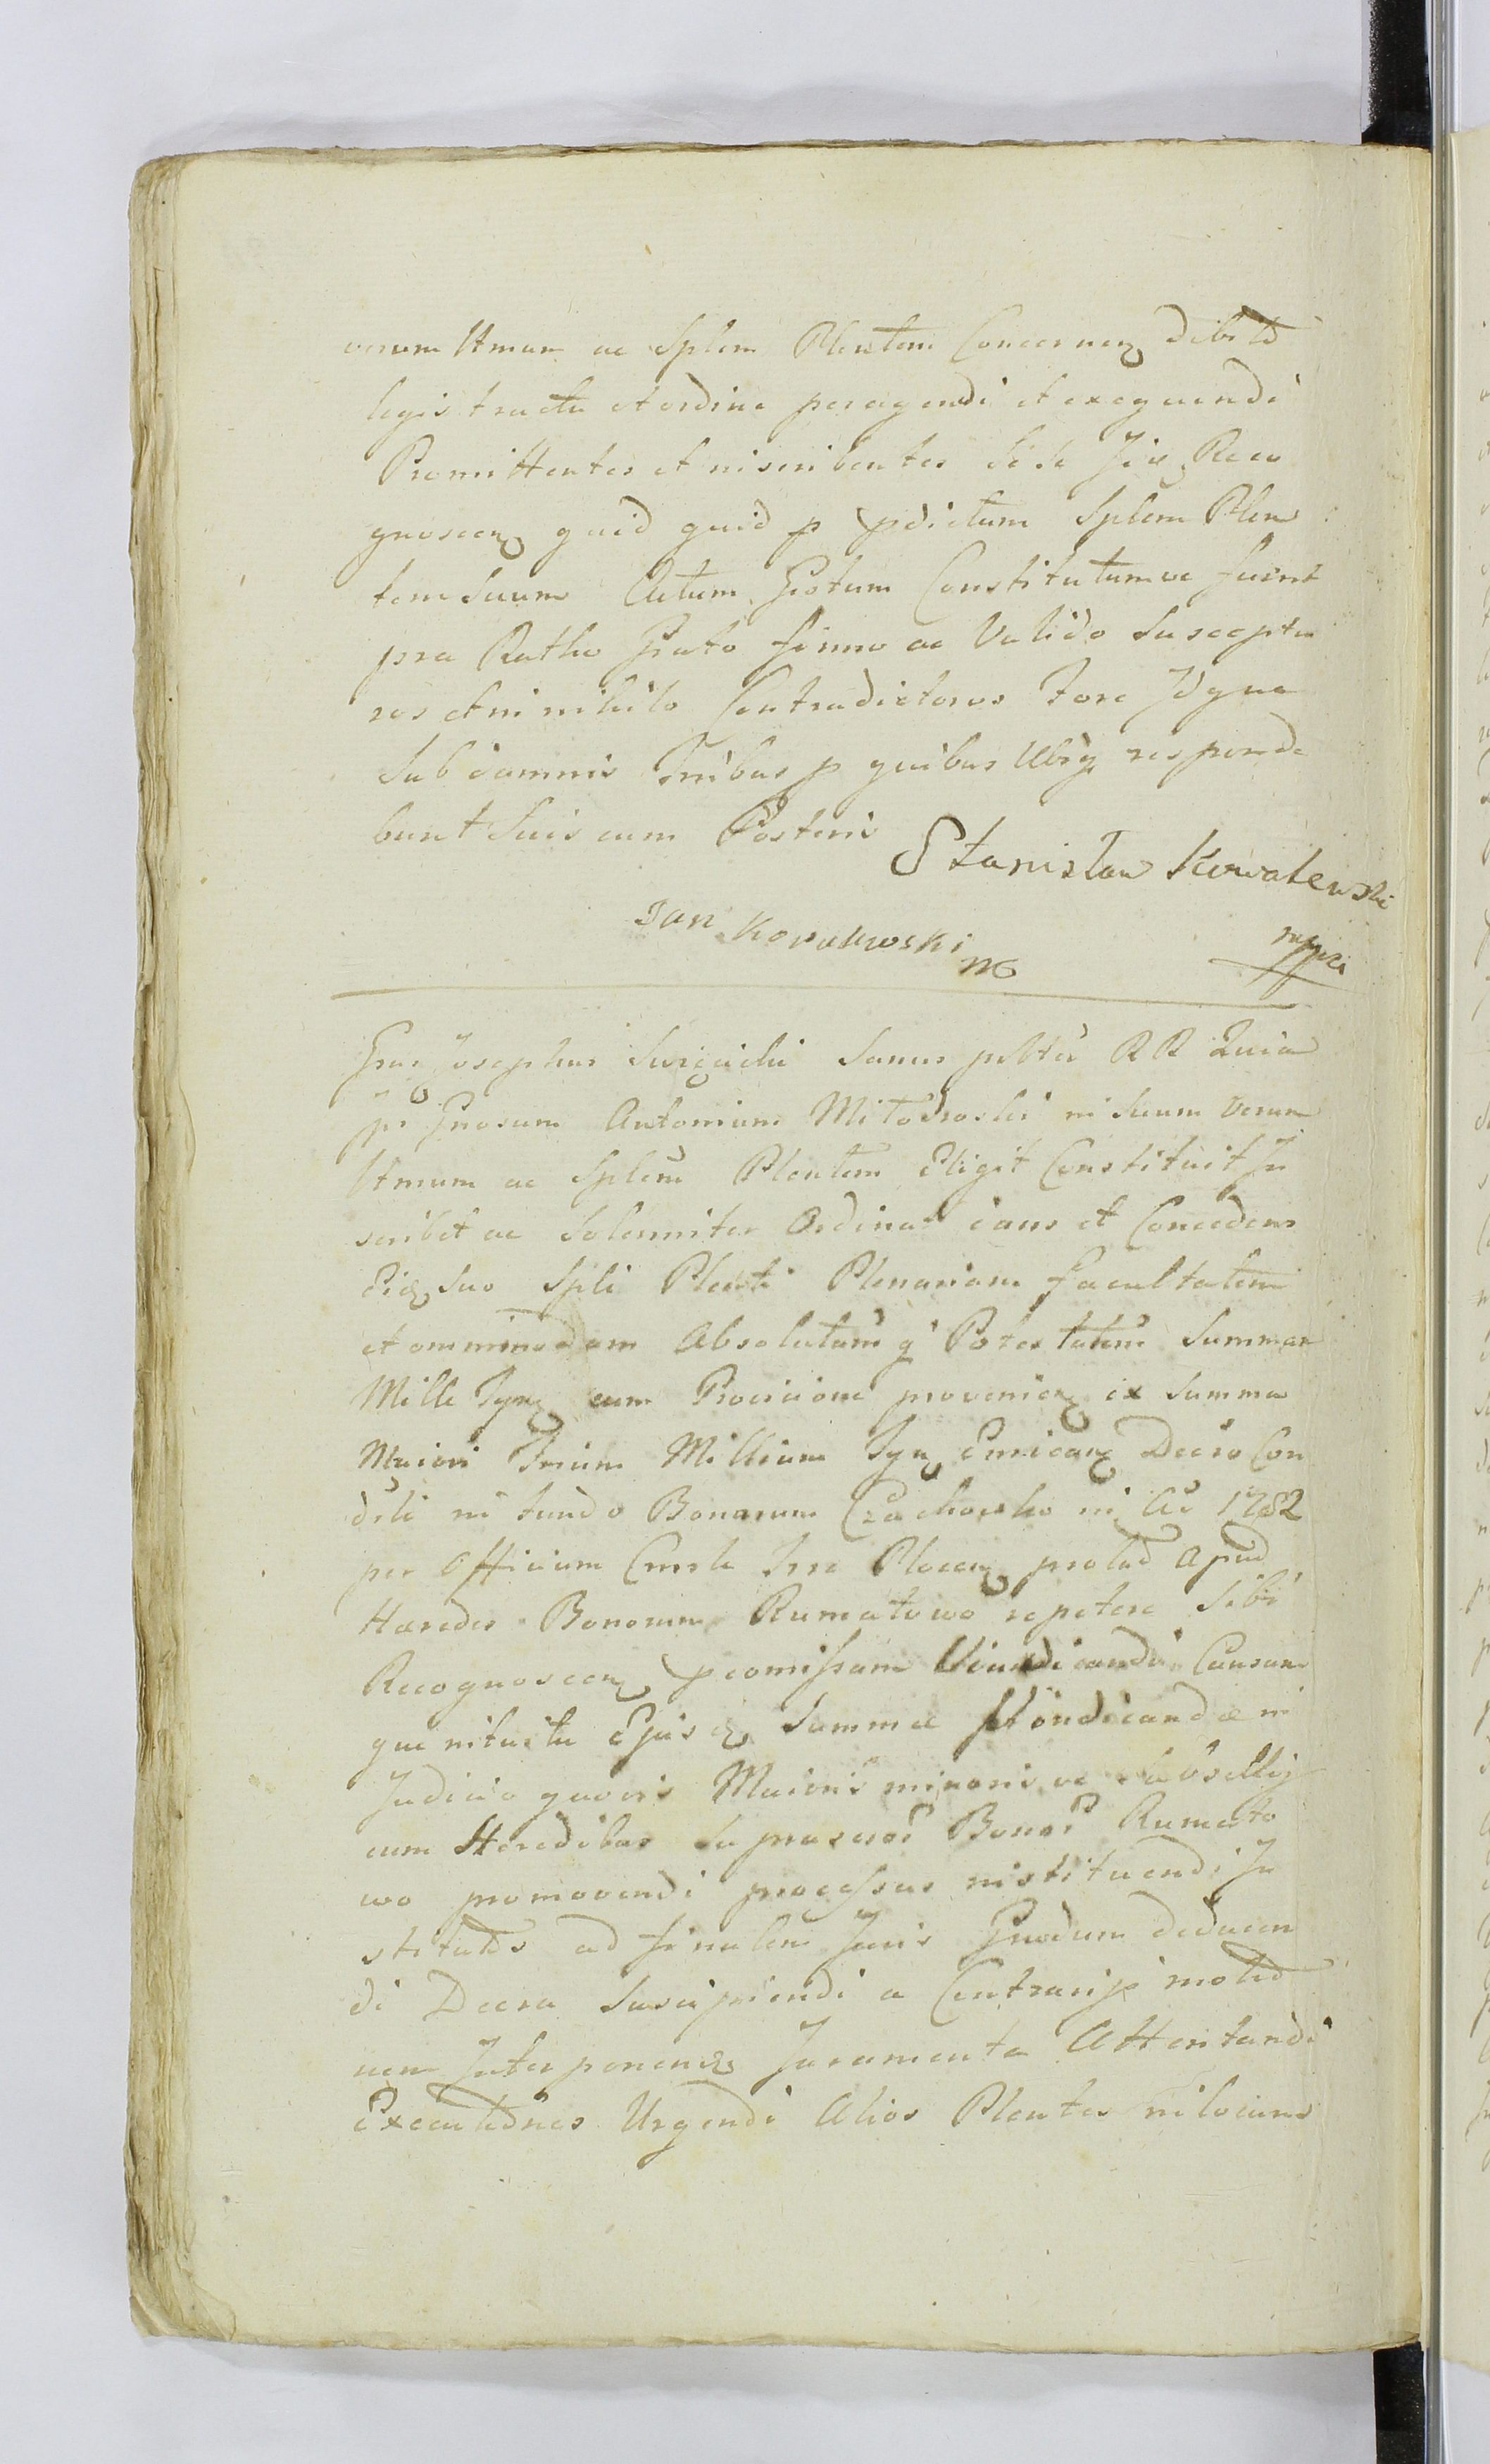 verum Ltmum ac Splem Plentem Concernen debito
legis tractu et ordine peragendi et exequendi
Promittentes et inscribentes Se se Jisq Reco
gnoscen quid quid p pdictum Splem Plen
tem Suum Actum Gestum Constitutumve fuerit
pro Ratho Grato firmo ac Valido Susceptu
ros et in nihilo Contradictoros fore Idque
Sub damnis Trribus p quibus Ubiq responde
bunt Suis cum Posteris
Stanisław Kowalewski
mppa
Jan Kowalewski
Grus Josephus Sanus pbtu R R Quia
ps Gnosum Antonium in Suum Verum
Ltmum ac Splem Plentem Eligit Constituit In
scribit ac Solenniter Ordinat dans et Concedens
Eidq Suo Spli Plenti Plenariam facultatem
et omnimodam Absolutamq Potestatem Summam
Mille Tyn cum Provisione provenien ex Summa
Maiori Trium Millium Tyn Decro Con
dēli in fundo Bonorum Czachowko in Ao 1782
per Officium Trre Plocen prolato Apud
Haeredes Bonorum Rumatowo repetere Sibi
Recognoscen promissam Vindicandi Causam
que intuitu Ejusq Summae Vindicandae in
Judicio quovis Maioris minoris ve Subsellij
cum Heredibus Bonor Rumato
wo promovendi processus instituendi In
stitutos ad finalem Juris Gradum deducen
di Decra Suscipiendi a Contrarijs
nem Interponen Juramenta Attentandi
Executiones Urgendi Alios Plentes in locum